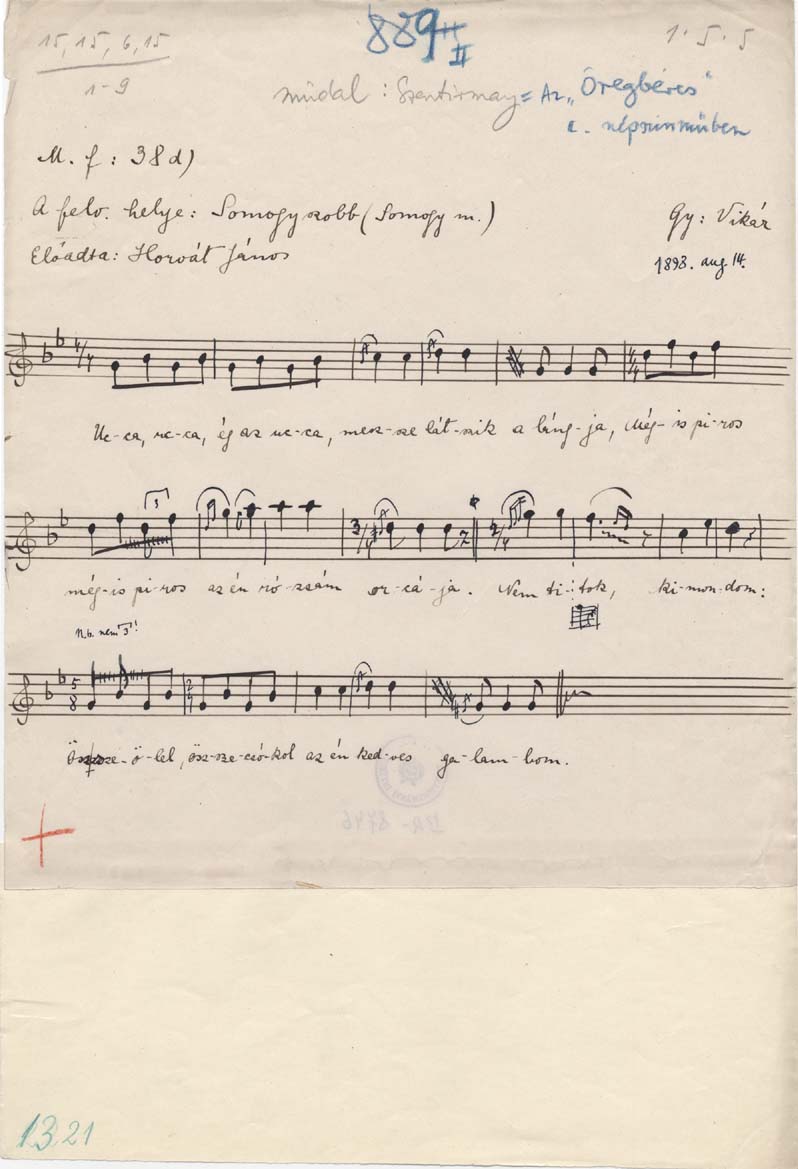 15, 15, 6, 15
1-9
889
II
1 . 5 . 5
műdal : Szentirmay = Az „Öregbéres"
c. népszinműben
M. f : 38 d)
A felv. helye : Somogyszobb ( Somogy m. )
Gy : Vikár
Előadta : Horvát János
1898. aug. 14.
Uc-ca, uc-ca, ég az uc-ca, mesz-sze lát-szik a láng-ja, Még-is pi-ros
3
még-is pi-ros az én ró-zsám or-cá-ja. Nem ti-tok, ki-mon-dom :
N.b. nem 3!
5
8
2
4
Ösz-sze-ö-lel, ösz-sze-csó-kol az én ked-ves ga-lam-bom.
1321